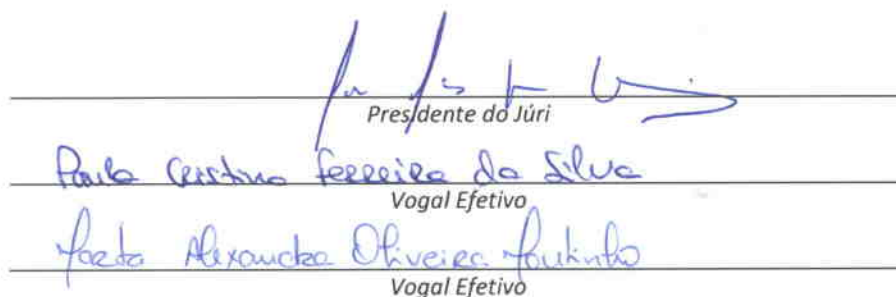 Presidente do Júri
Paula Cristina Ferreira da Silva
Vogal Efetivo
Marta Alexandra Oliveira Moutinho
Vogal Efetivo